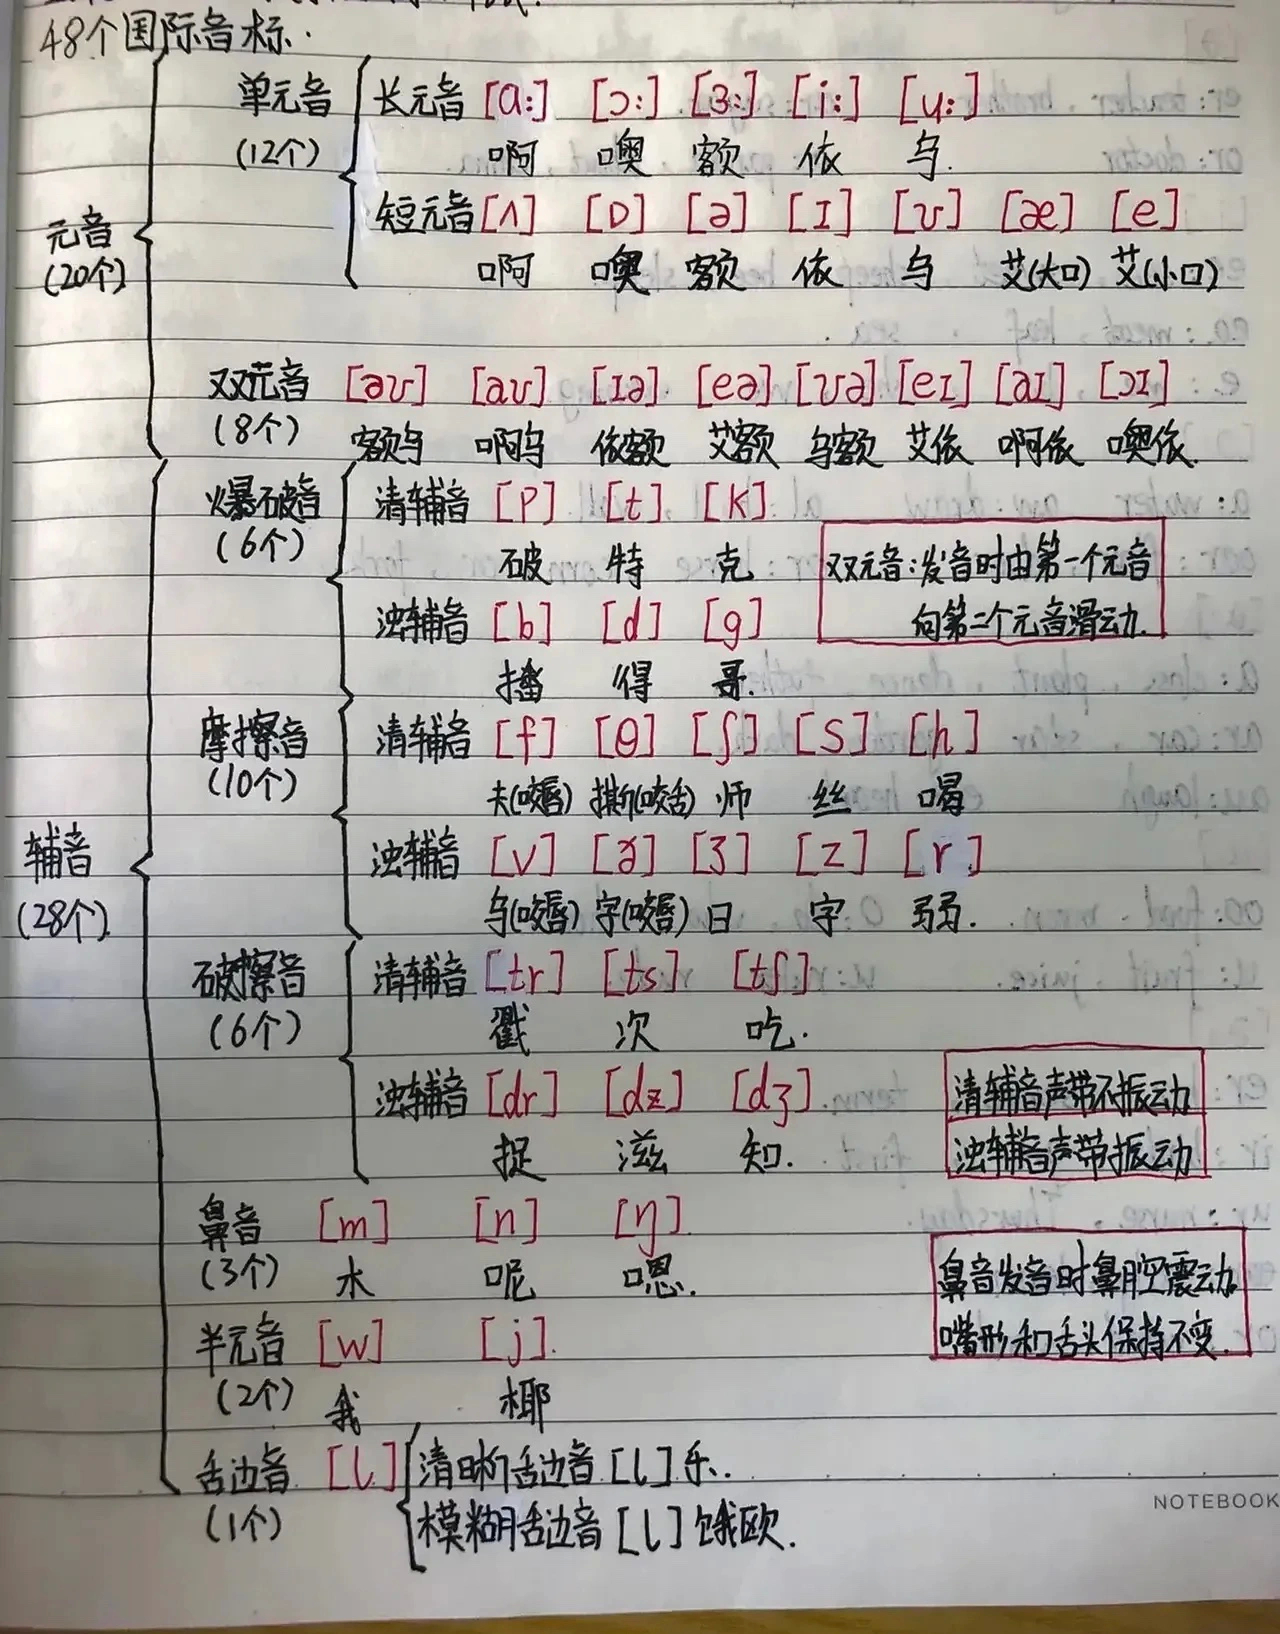 48个国际音标.
单元音 长元音 [ɑ:] [ɔ:] [ɜ:] [i:] [u:]
(12个) 啊 噢 额 依 乌.
短元音 [ʌ] [ɒ] [ə] [ɪ] [ʊ] [æ] [e]
元音
(20个) 啊 噢 额 依 乌 艾(大口) 艾(小口)
双元音 [əʊ] [aʊ] [ɪə] [eə] [ʊə] [eɪ] [aɪ] [ɔɪ]
(8个) 额乌 啊乌 依额 艾额 乌额 艾依 啊依 噢依.
爆破音 清辅音 [p] [t] [k]
(6个) 破 特 克
双元音:发音时由第一个元音
向第二个元音滑动.
浊辅音 [b] [d] [g]
播 得 哥.
摩擦音 清辅音 [f] [θ] [ʃ] [s] [h]
(10个) 夫(咬唇) 撕(咬舌) 师 丝 喝
辅音
(28个)
浊辅音 [v] [ð] [ʒ] [z] [r]
乌(咬唇) 字(咬唇) 日 字 弱.
破擦音 清辅音 [tr] [ts] [tʃ]
(6个) 戳 次 吃.
浊辅音 [dr] [dz] [dʒ].
捉 滋 知.
清辅音声带不振动
浊辅音声带振动
鼻音 [m] [n] [ŋ].
(3个) 木 呢 嗯.
鼻音发音时鼻腔震动.
嘴形和舌头保持不变.
半元音 [w] [j].
(2个) 我 椰
舌边音 [l] 清晰舌边音 [l] 乐.
(1个) 模糊舌边音 [l] 饿欧.
NOTEBOOK